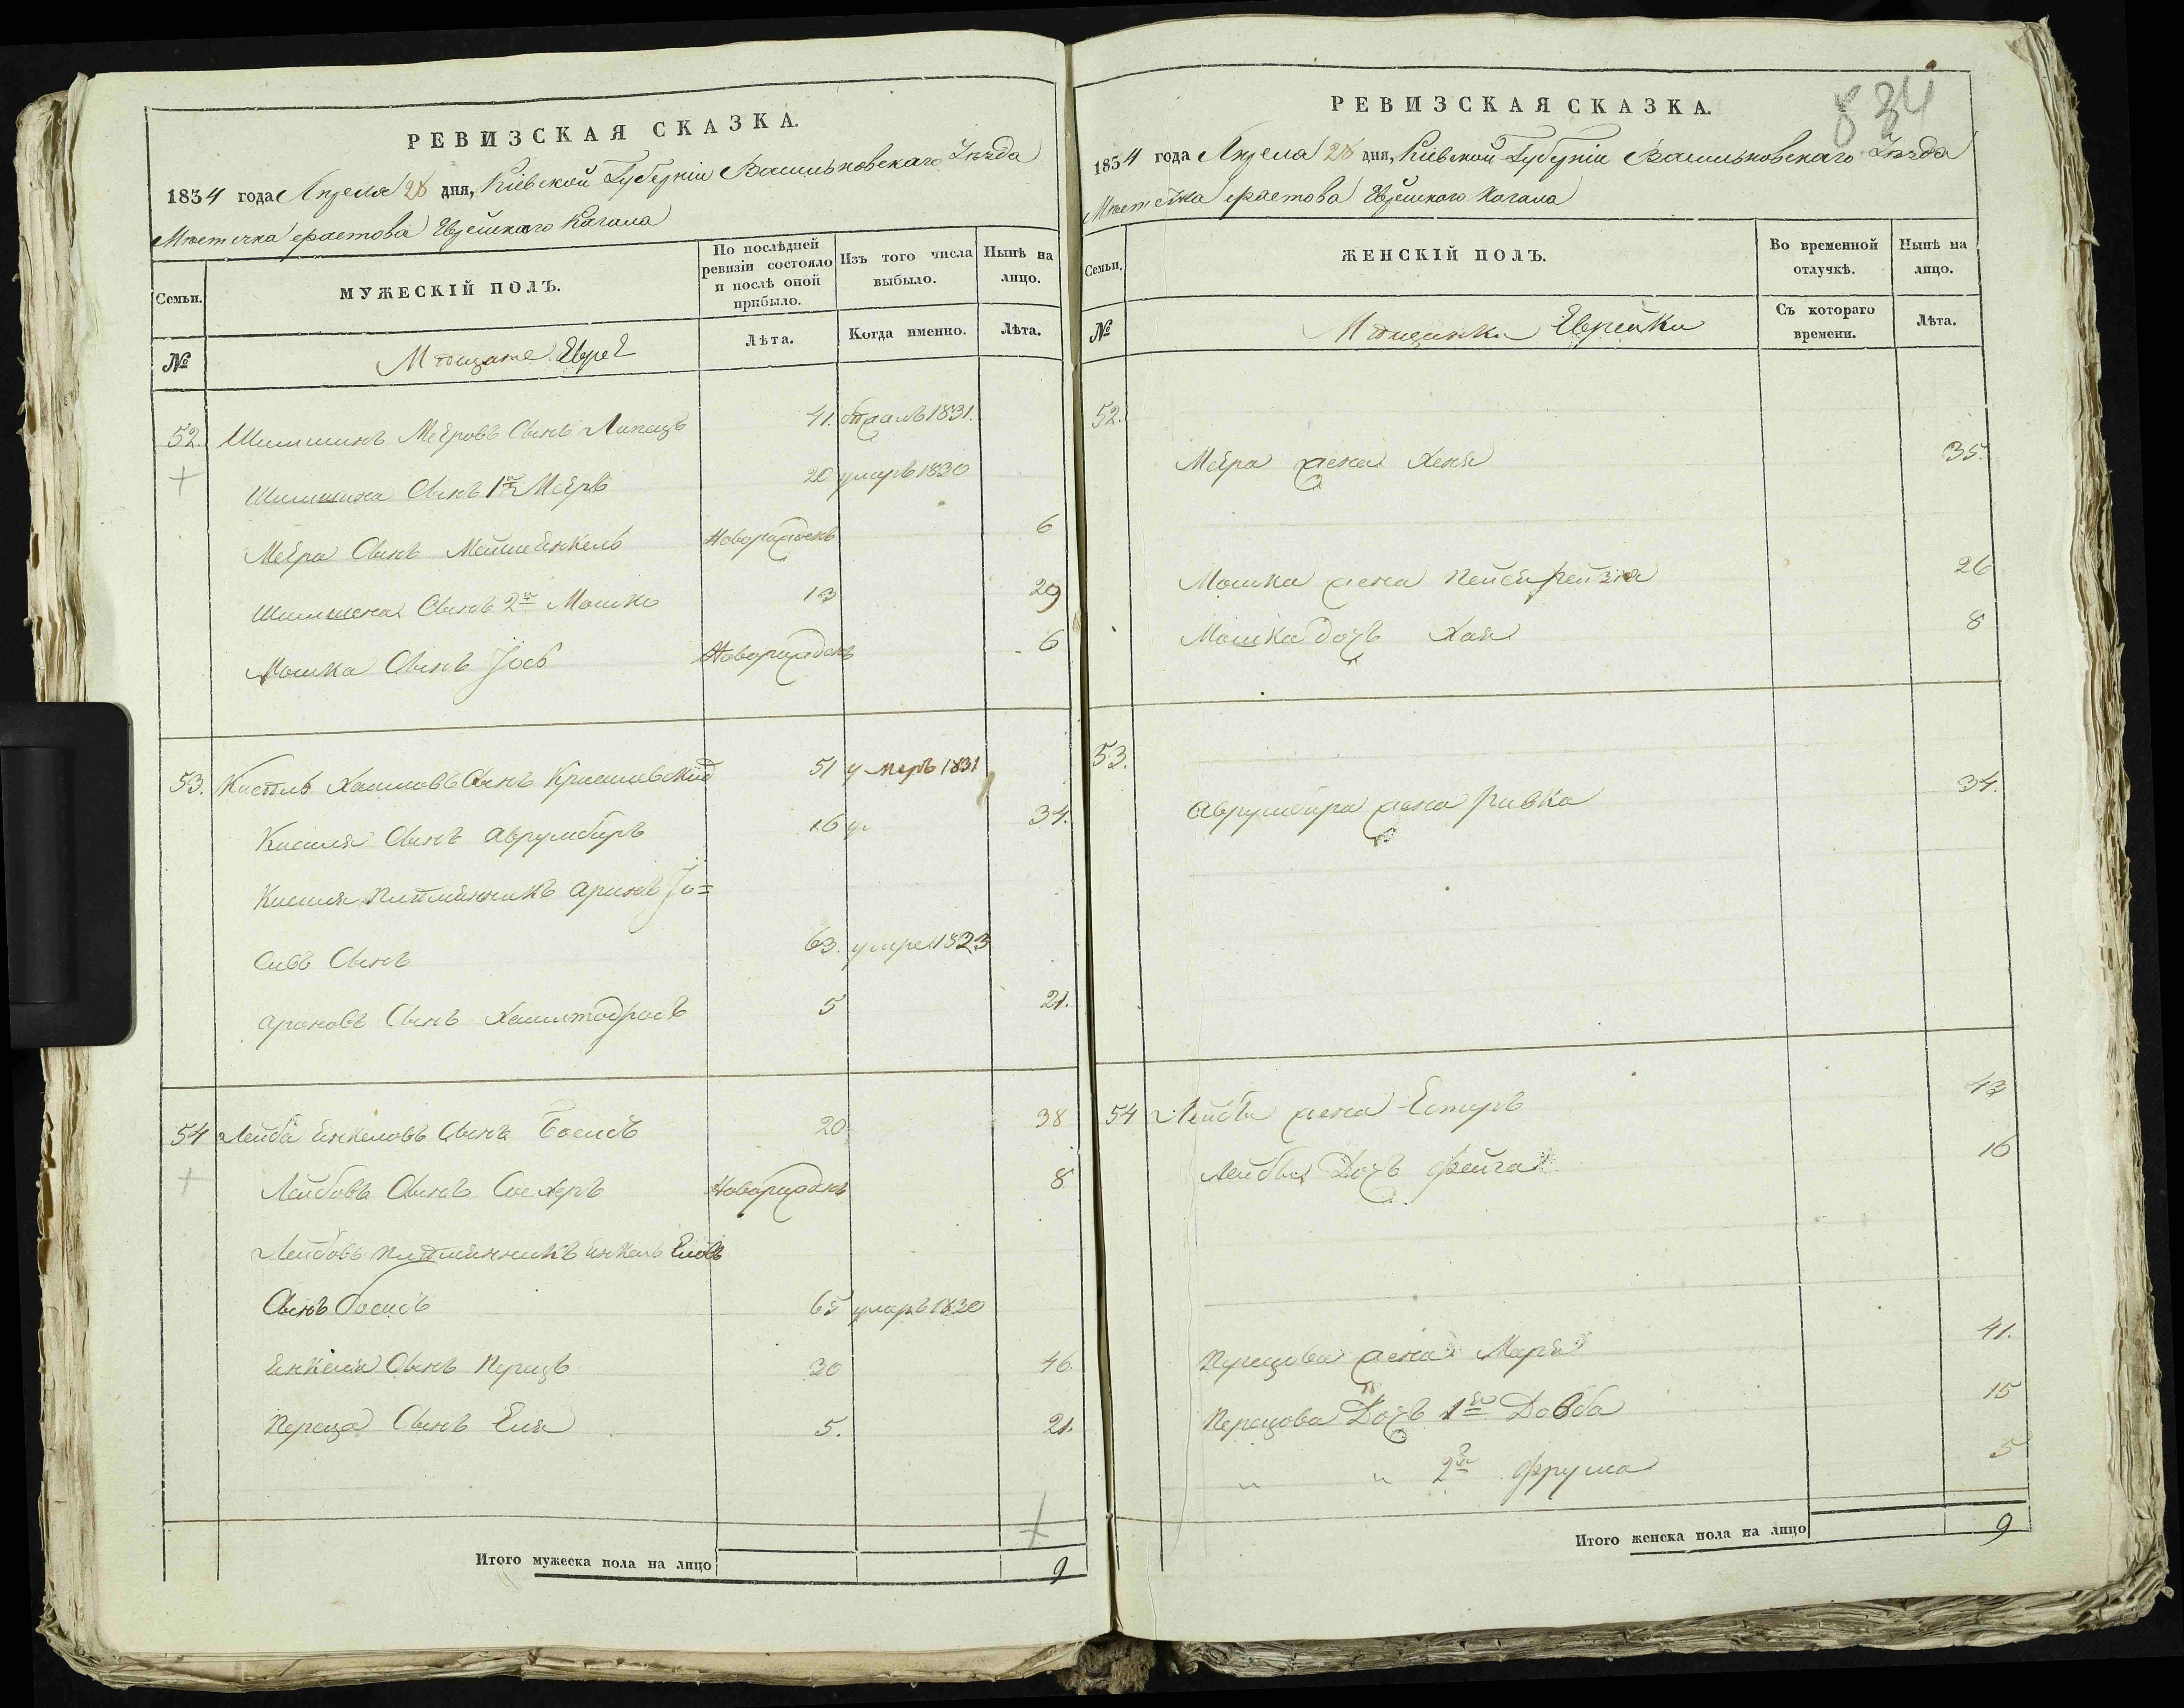 РЕВИЗСКАЯ СКАЗКА.
1834 года Апреля 28 дня, Кіевской Губерніи Васильковскаго Уѣзда
Мѣстечка Фастова Еврейскаго Кагала
Семьи.
МУЖЕСКІЙ ПОЛЪ.
По послѣдней ревизіи состояло и послѣ оной прибыло.
Изъ того числа выбыло.
Нынѣ на лицо.
№
Мѣщане Евреи
Лѣта.
Когда именно.
Лѣта.
52. Шимшинъ Мееровъ Сынъ Липецъ 41. 1831.
Шимшина Сынъ 1й Мееръ 20 умеръ 1830
Меера Сынъ Мойше Енкель Новорожденъ 6
Шимшена Сынъ 2й Мошко 13 29
Мошка Сынъ Іосъ Новорожденъ 6
53. Кисель Хаимовъ Сынъ 51 умеръ 1831
Киселя Сынъ Аврумберъ 16 34.
Киселя племянникъ Аронъ Іо=
совъ Сынъ 63. умре 1823
Ароновъ Сынъ Хаимтодросъ 5 21.
54 Лейба Енкеловъ Сынъ 20 38
Лейбовъ Сынъ Сухеръ Новорожденъ 8
Лейбовъ племянникъ Енкель Еліовъ
Сынъ 65 умеръ 1830
Енкеля Сынъ Перецъ 30 46.
Переца Сынъ Еля 5. 21.
Итого мужеска пола на лицо 9
834
РЕВИЗСКАЯ СКАЗКА.
1834 года Апреля 28 дня, Кіевской Губерніи Васильковскаго Уѣзда
Мѣстечка Фастова Еврейскаго Кагала
Семьи.
ЖЕНСКІЙ ПОЛЪ.
Во временной отлучкѣ.
Нынѣ на лицо.
№
Мѣщанки Еврейки
Съ котораго времени.
Лѣта.
52.
Меера жена Хеня 35.
Мошка жена Рейзя 26
Мошка дочь Хая 8
53.
Аврумбера жена Ривка 34.
54 Лейбы жена Естеръ 43
Лейбы Дочь Фейга 16
Перецова жена Маря 41.
Перецова Дочь 1я Довба 15
" " 2я Фрума 5
Итого женска пола на лицо 9